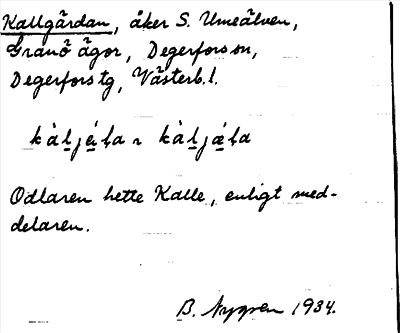 Kallgårdan, åker S. Umeälven,
Granö ägor, Degerfors sn,
Degerfors tg, Västerb. l.
kàljá̤ḷa ~ kàljæ̤ḷa
Odlaren hette Kalle, enligt med-
delaren.
B. Nygren 1934.